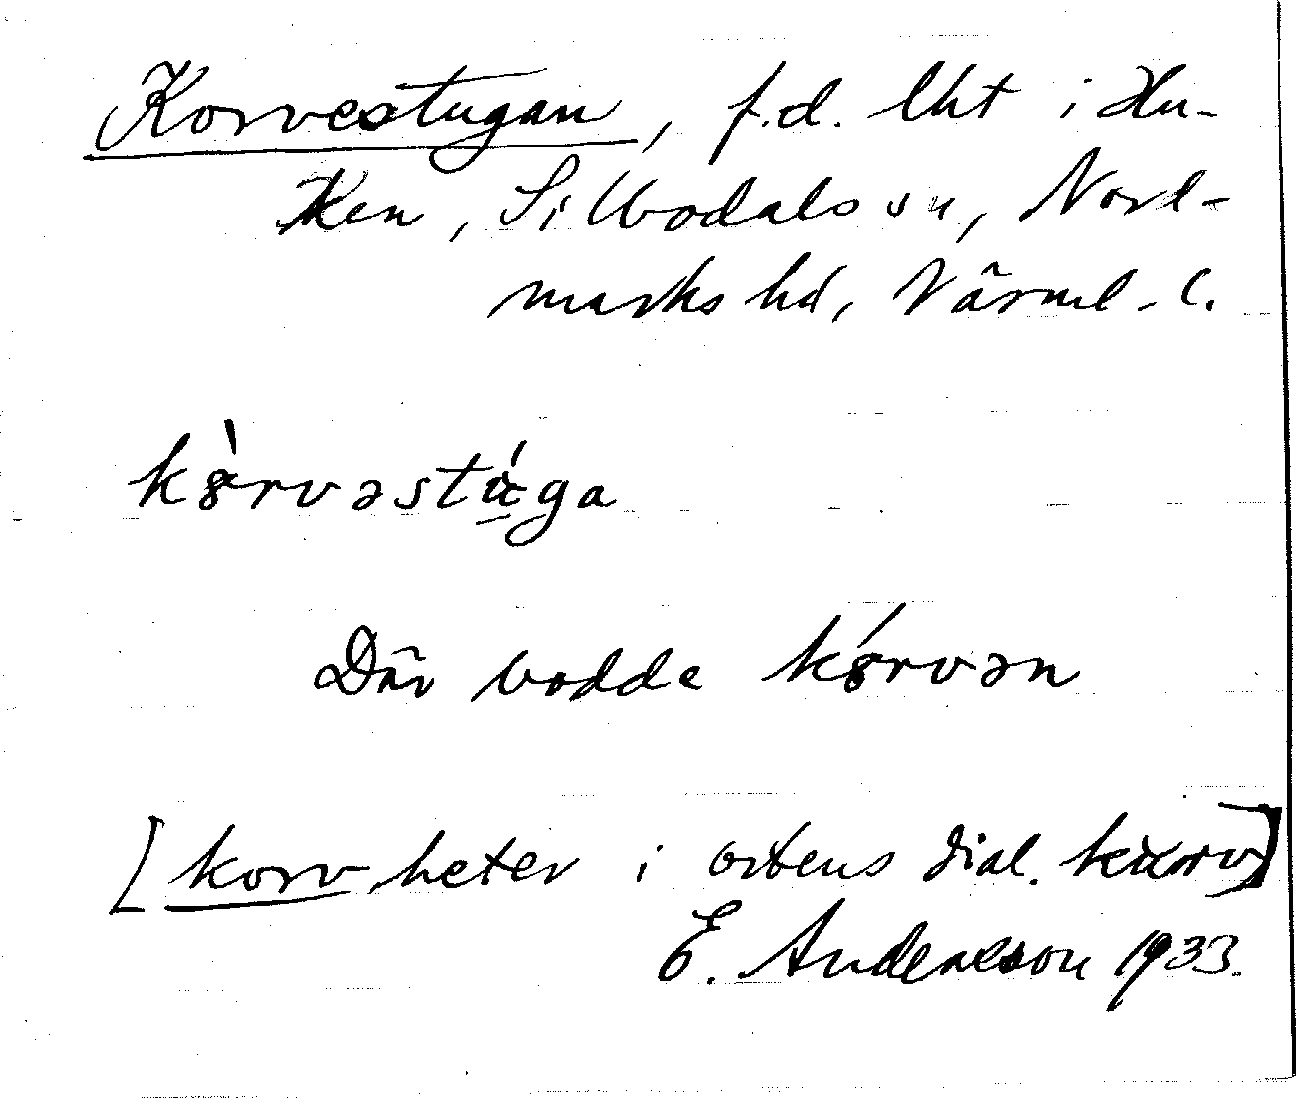 Korvestugan, f.d. lht i Hu-
ken, Silbodals sn, Nord-
marks hd, Värml. l.
kòrvəstúga
Där bodde kórvən
[korv heter i ortens dial. korv]
E. Andersson 1933.